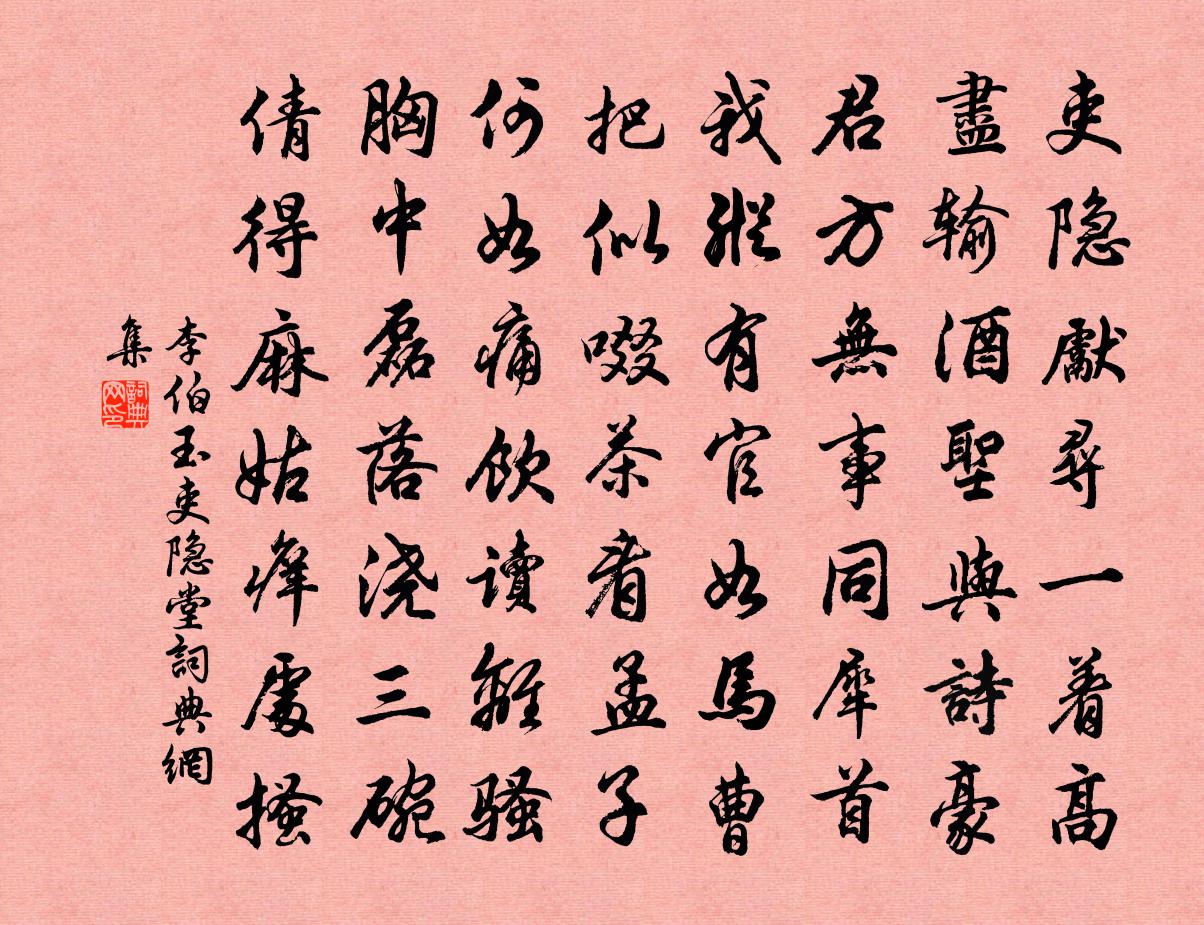 吏隐獻尋一着高
盡输酒聖與詩豪
君方無事同犀首
我縱有官如馬曹
把似啜茶看孟子
何如痛飲讀離骚
胸中磊落浇三碗
倩得麻姑痒處搔
李伯玉吏隐堂詞典網
集
詞典
网印